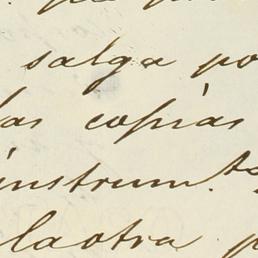 salga po
las copias
instrum.tos
la otra p